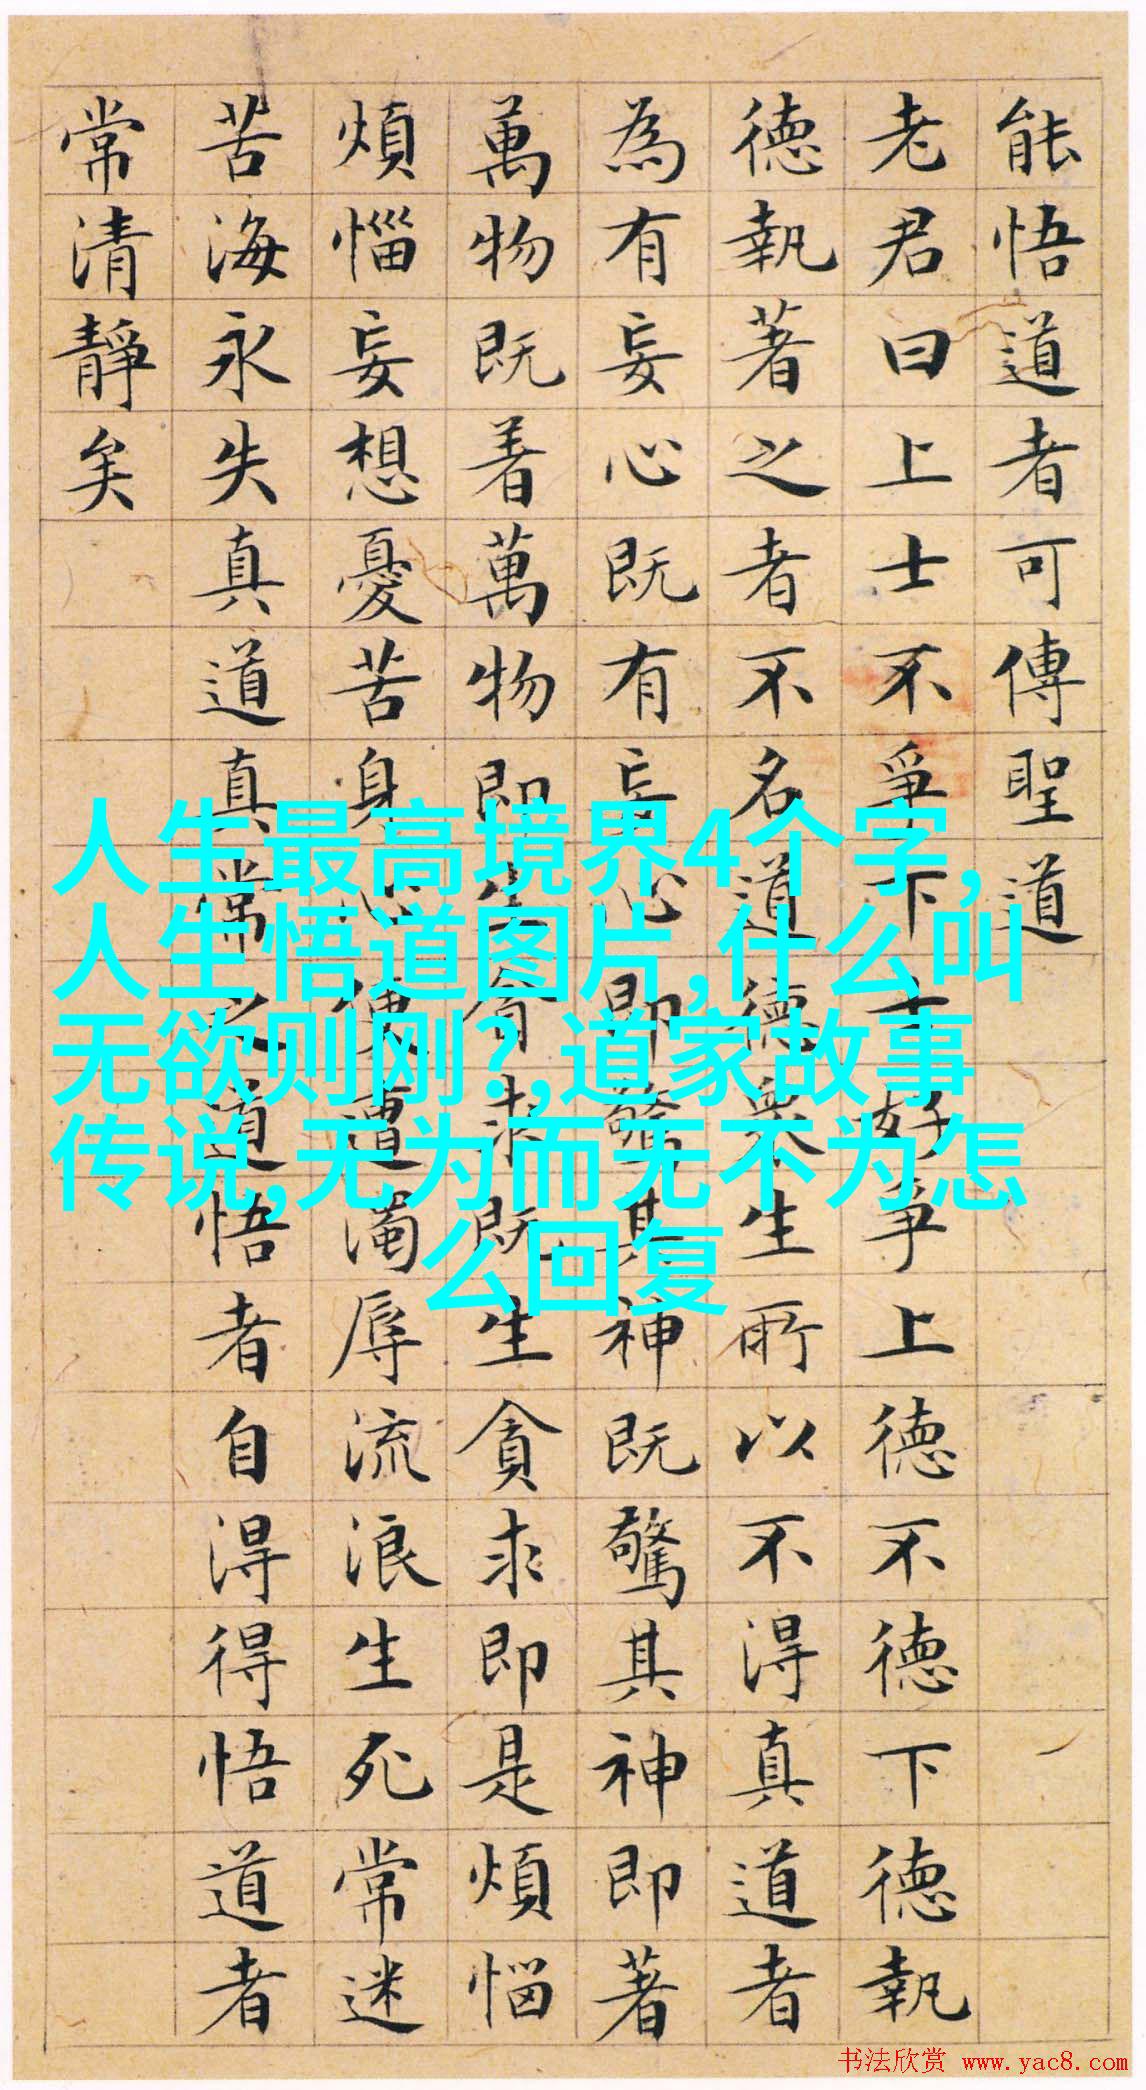 能悟道者可傳聖道
老君曰上士不爭下士好爭上德不德下德執
德執著之者不名道德衆生所以不得真道者
為有妄心既有妄心即驚其神既驚其神即著
萬物既着萬物即生貪求既生貪求即是煩惱
煩惱妄想憂苦身心便遭濁辱流浪生死常迷
苦海永失真道真常之道悟者自得得悟道者
常清靜矣
人生最高境界4个字,
人生悟道图片,什么叫
无欲则刚?,道家故事
传说,无为而无不为怎
么回复
书法欣赏 www.yac8.com